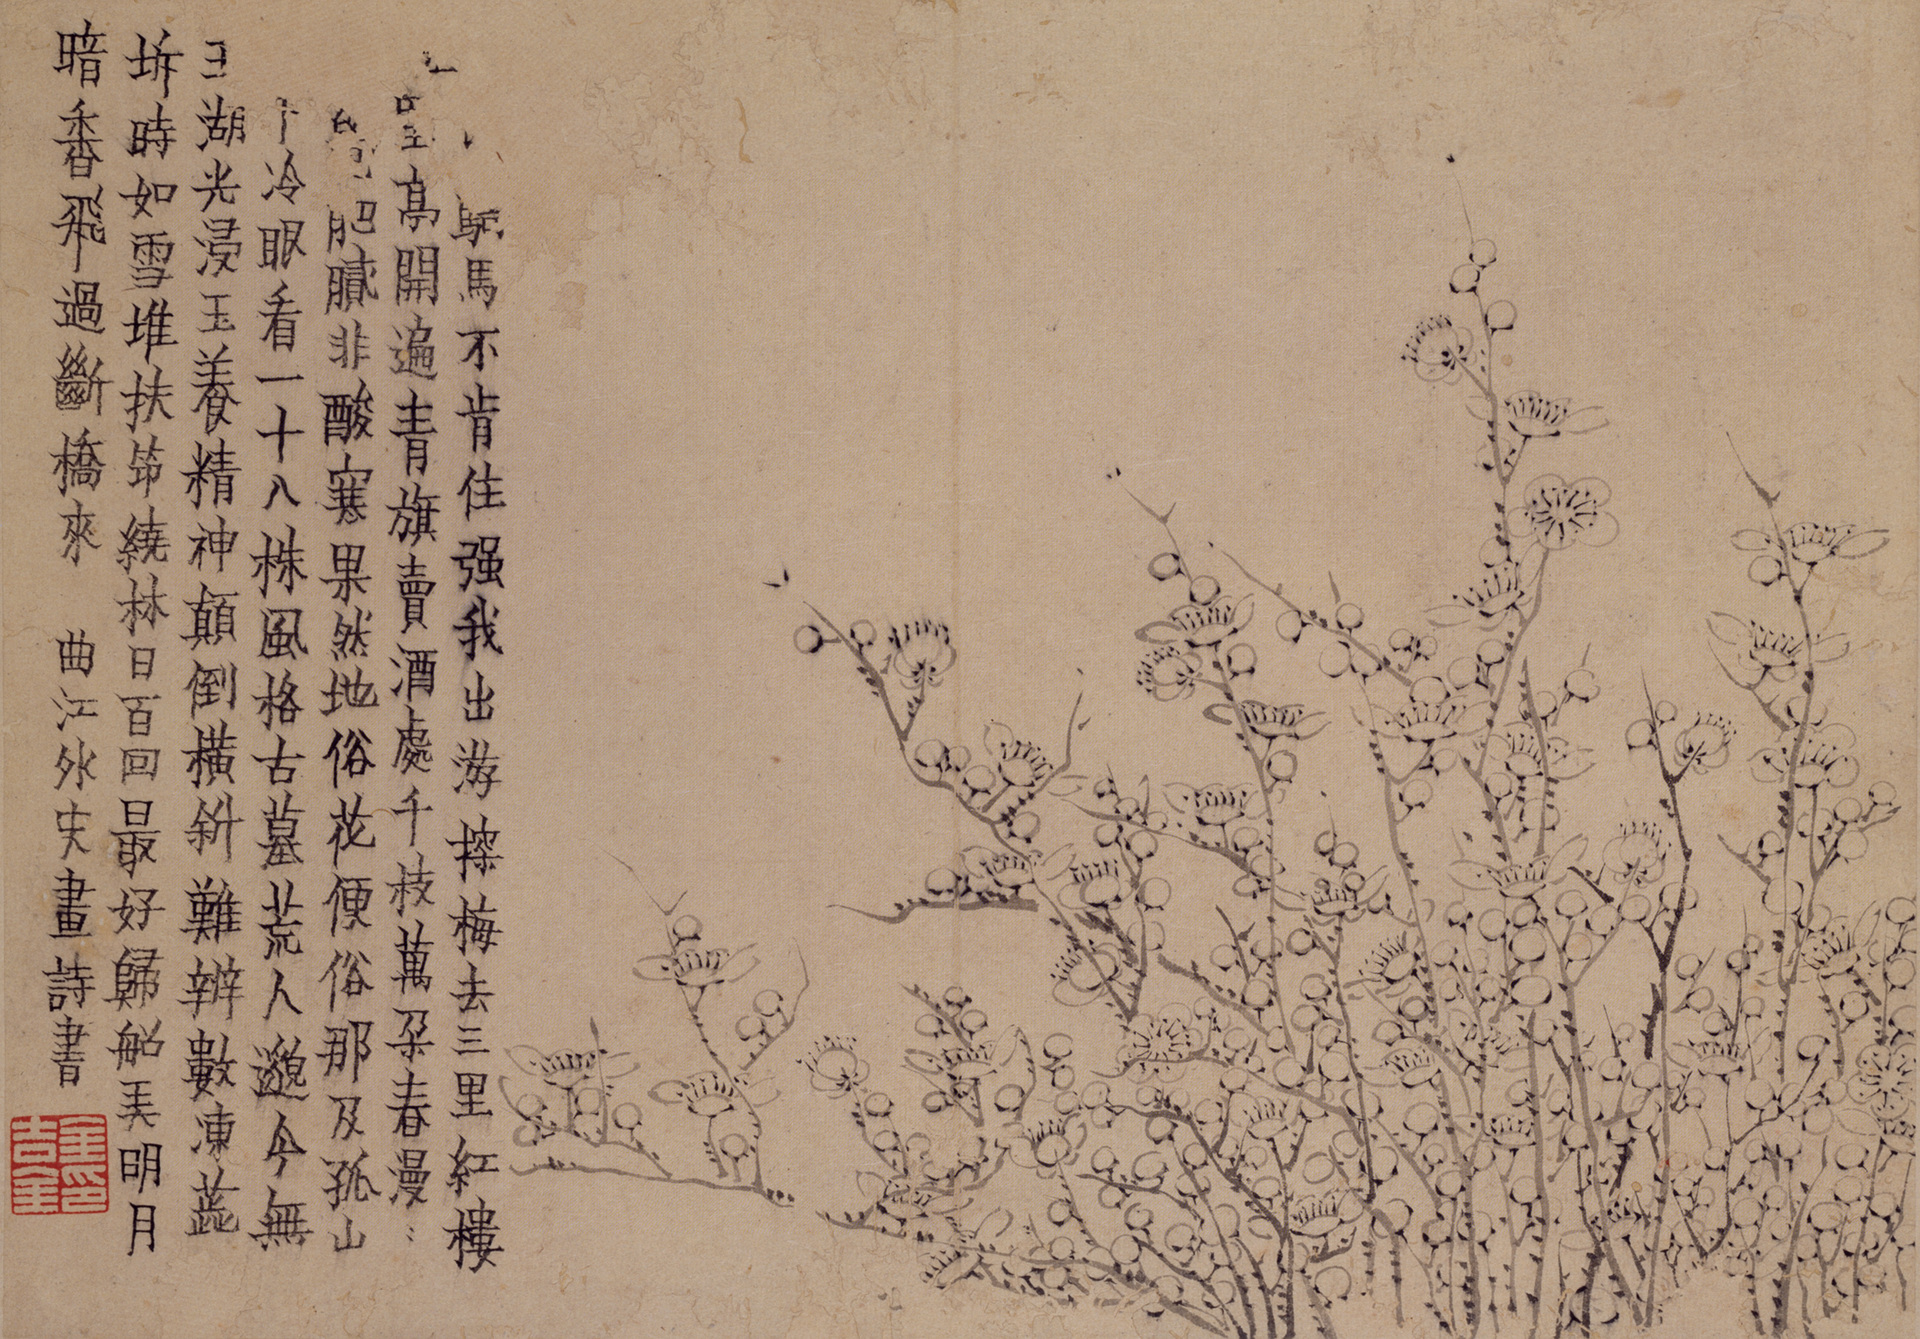 驢馬不肯住强我出游探梅去三里紅樓
亭開遍青旗賣酒處千枝萬朵春漫〻
肥膩非酸寒果然地俗花便俗那及孤山
冷眼看一十八株風格古墓荒人邈今無
湖光浸玉養精神顛倒橫斜難辨數凍蕊
坼時如雪堆扶筇繞林日百回最好歸船美明月
暗香飛過斷橋來 曲江外史畫詩書